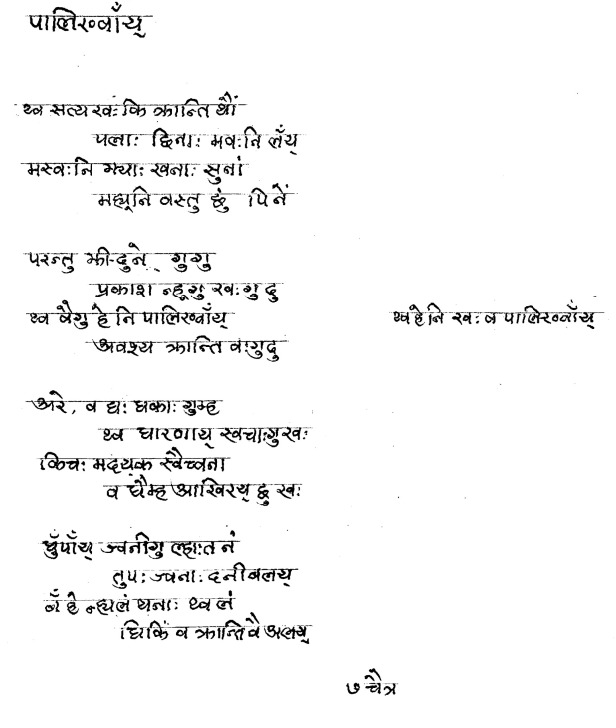 पालिख्वाँय्
थ्व सत्य खः कि क्रान्ति थौं
पलाः द्विनाः मवःनि लँय्
मस्वःनि म्याः खनाः सुनां
मह्यूनि वस्तु छुं पिनें
परन्तु झी-दुने गुगु
प्रकाश न्हूगु खःगु दु
थ्व वैगु हे नि पालिख्वाँय्
अवश्य क्रान्ति वःगु दु
थ्व हे नि खः व पालिख्वाँय्
अरे, व द्यः धकाः गुम्ह
थ्व धारणाय् स्वचाःगु खः
किचः मदय्क स्वैच्वना
व धैम्ह आखिरय् छु खः
धुँपाँय् ज्वनीगु ल्हाःतनं
तुपः ज्वनाः दनीबलय्
लँ हे न्ह्यलं थनाः थ्व लं
धिकिं व क्रान्ति वै अलय्
७ चैत्र